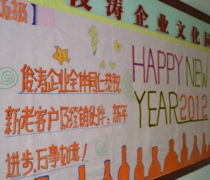 俊涛企业文化园
俊涛企业全体同仁恭祝
HAPPY NEW
新老客户及经销伙伴：新年
YEAR 2012
进步，万事如意！